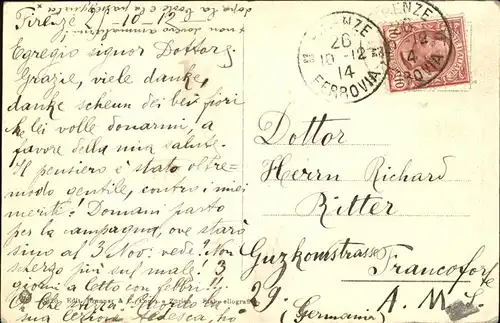 + non dovevo ammalarmi
Firenze 25-10-12
Egregio signor Dottore;
Grazie, viele danke,
danke scheun dei bei fiori
che lei volle donarmi, a
favore della mia salute.
Il pensiero è stato oltre-
modo gentile, contro i miei
meriti! Domani parto
per la campagna, ove starò
sino al 3 Nov: vede! Non
scherzo più sul male! 3
giorni a letto con febbri!
che
sua lezione tedesca, ho
FIRENZE
26
10-12
14
FERROVIA
FIRENZE
14
Dottor
Herrn Richard
Ritter
Guzkowstrasse
29.
Francoforte
A. M.
(Germania)